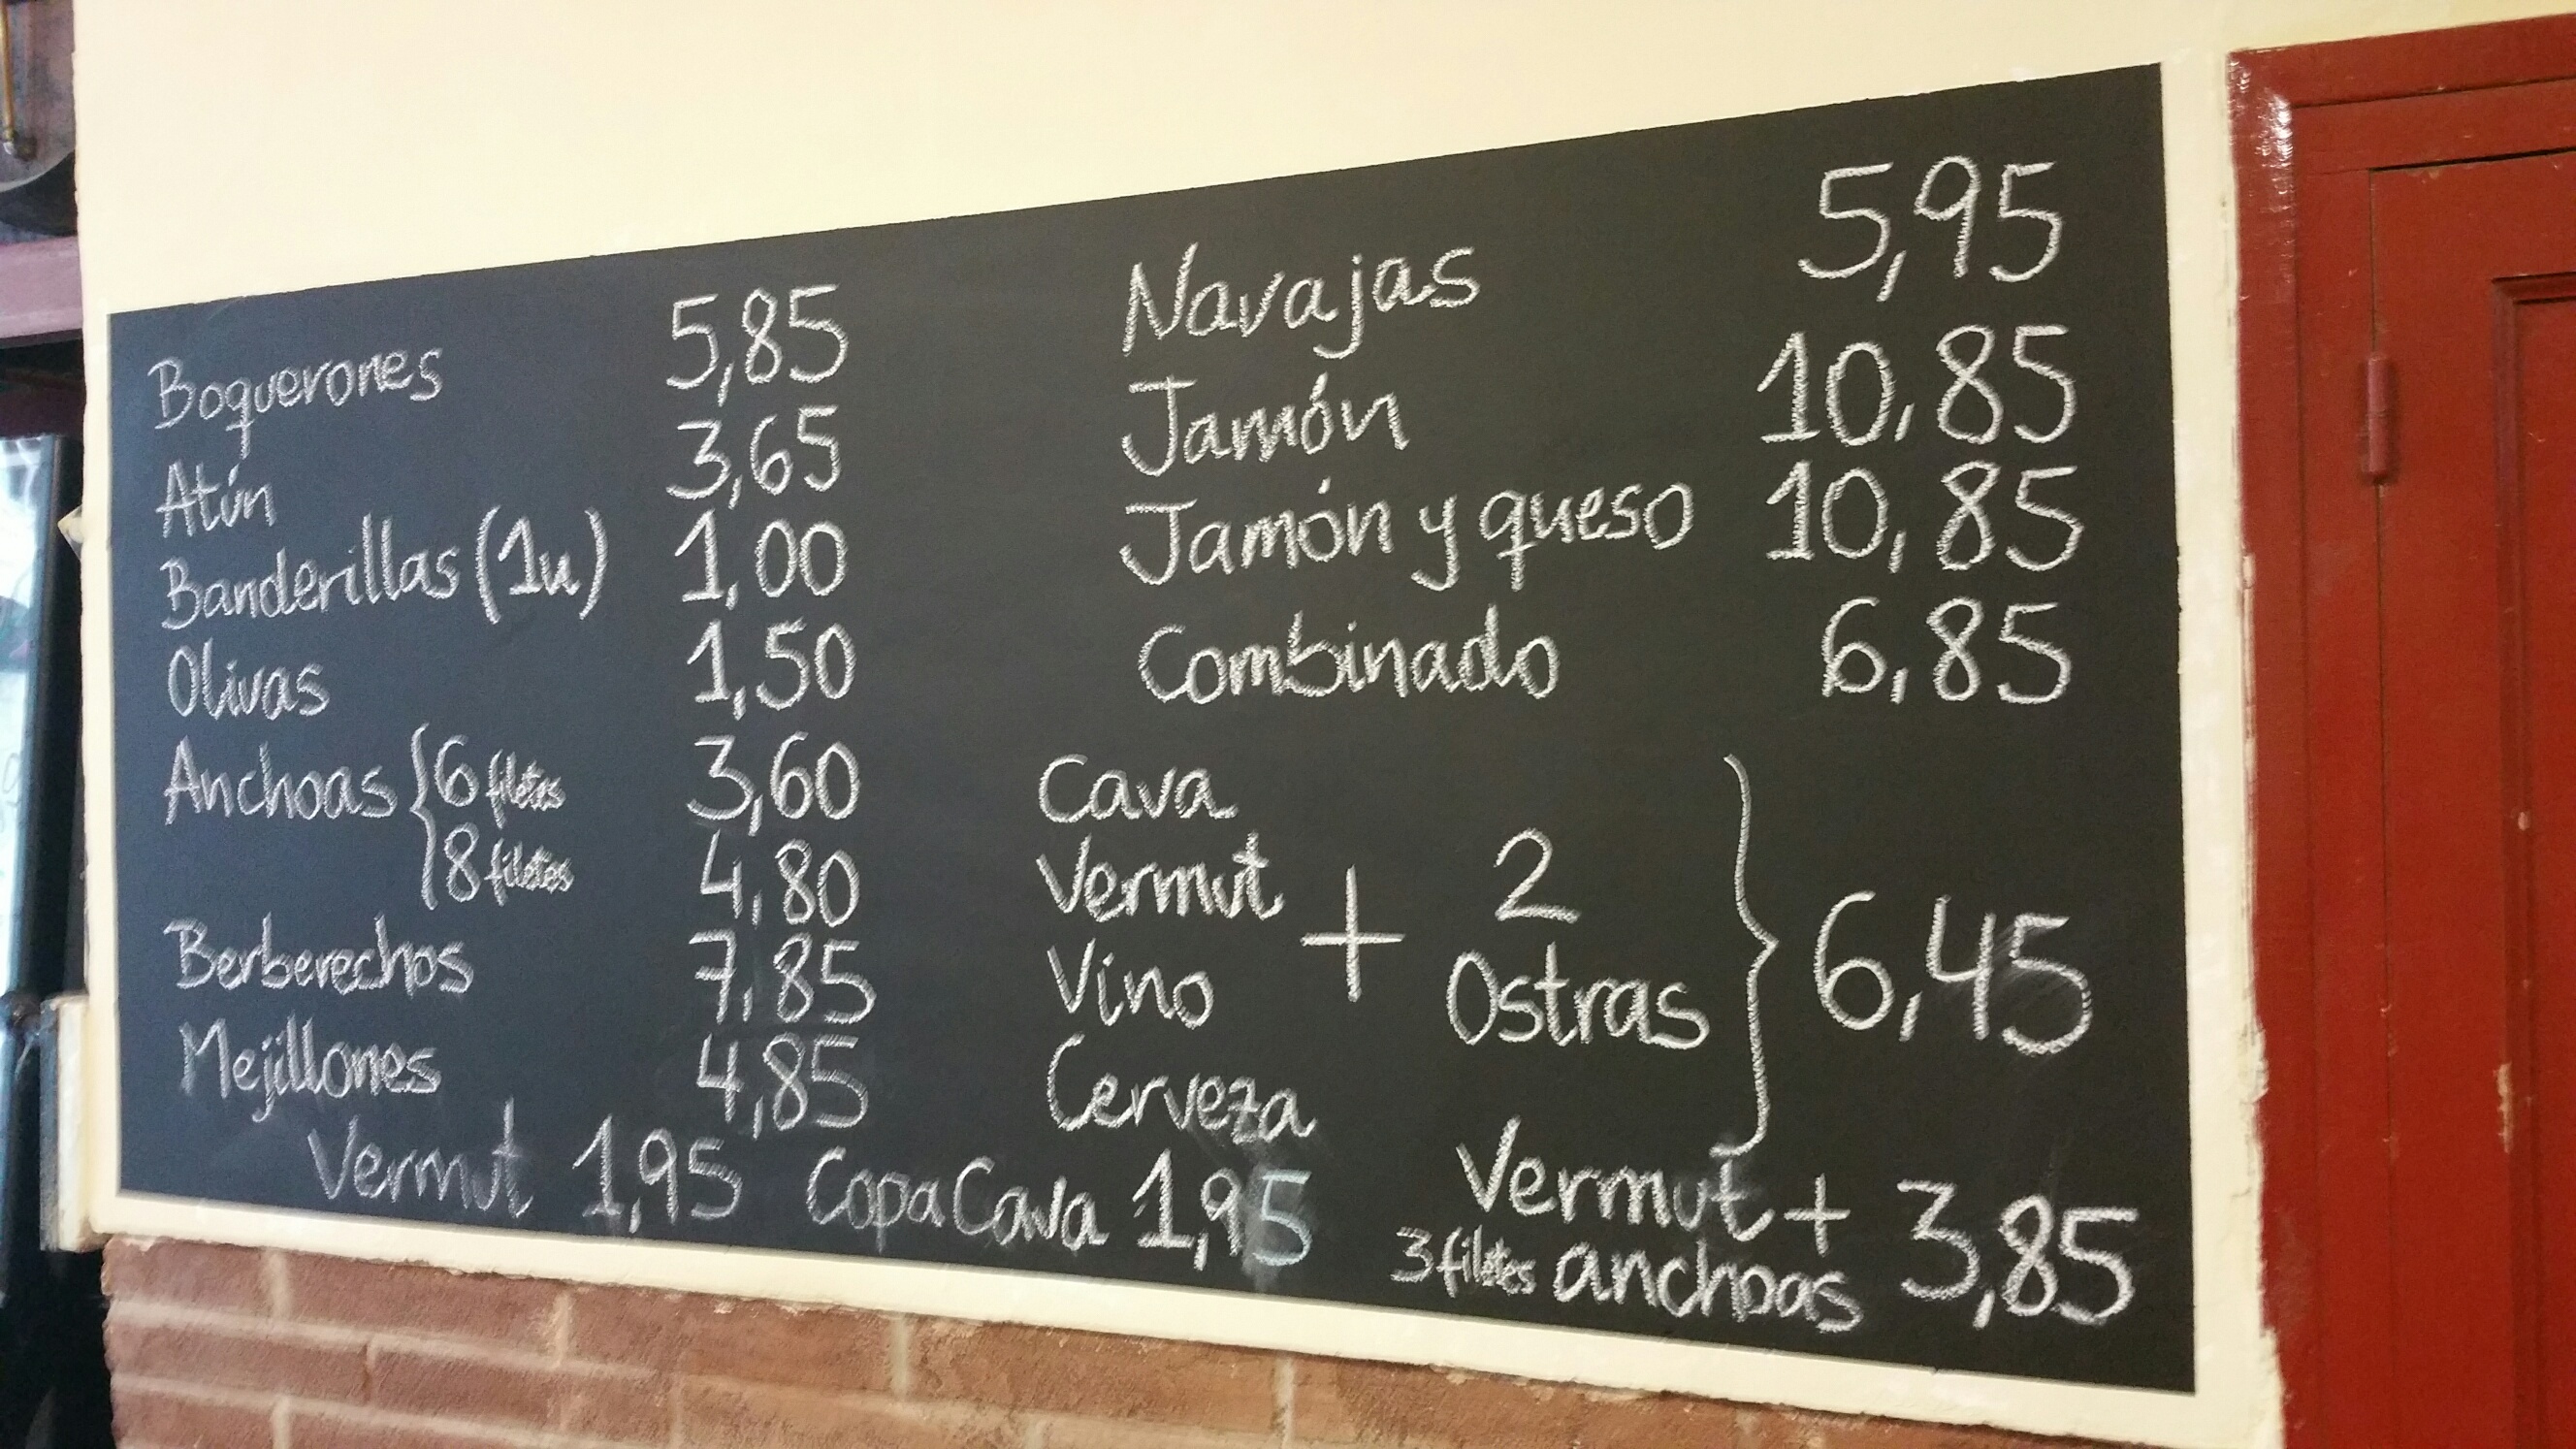 Boquerones 5,85
Atún 3,65
Banderillas (1u) 1,00
Olivas 1,50
Anchoas { 6 filetes 3,60
8 filetes 4,80
Berberechos 7,85
Mejillones 4,85
Navajas 5,95
Jamón 10,85
Jamón y queso 10,85
Combinado 6,85
Cava
Vermut
Vino
Cerveza
+
2
Ostras
} 6,45
Vermut 1,95 Copa Cava 1,95
Vermut +
3 filetes anchoas 3,85